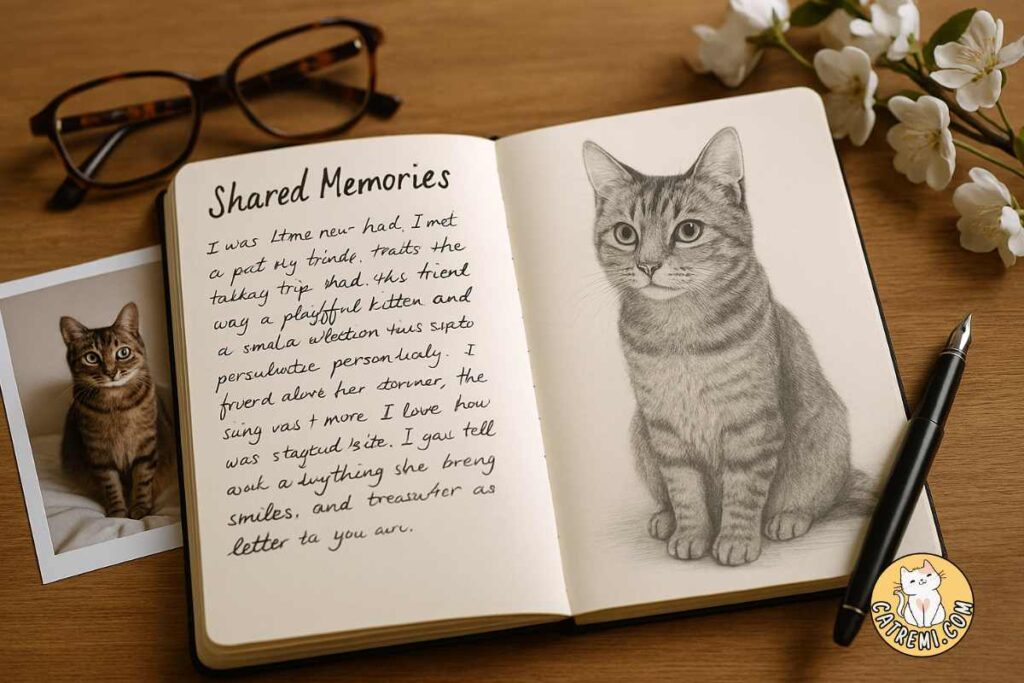 Shared Memories
I was Ltme new had, I met
a pat my trinde, traits the
takkay trip shad. this trient
way a playfful kitten and
a smala wlection tius sipto
persulwctie person laly. I
frverd alove her dorner, the
suing vas t more I love how
was stagtud site. I gau tell
a duything she breng
smiles, and treasufter as
letter ta you aur.
CATREMI.COM